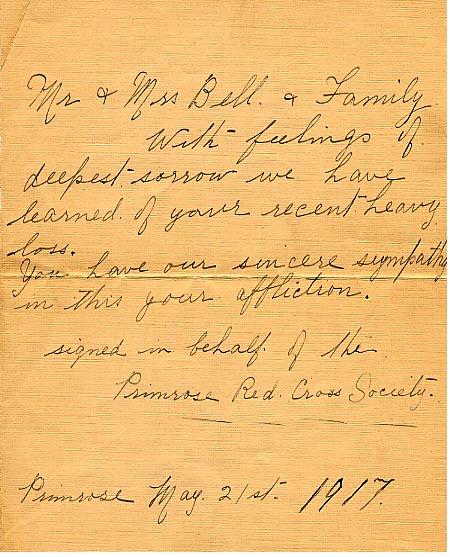 Mr & Mrs Bell. & Family.
With feelings of
deepest sorrow we have
learned of your recent heavy
loss.
You have our sincere sympathy
in this your affliction.
signed in behalf of the
Primrose Red. Cross Society.
Primrose May. 21st. 1917.